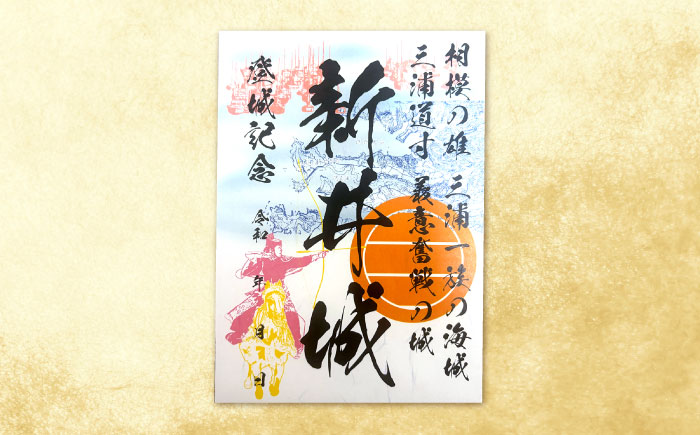 相模の雄 三浦一族の海城
三浦道寸 義意奮戦の城
新井城
登城記念
令和 年 月 日